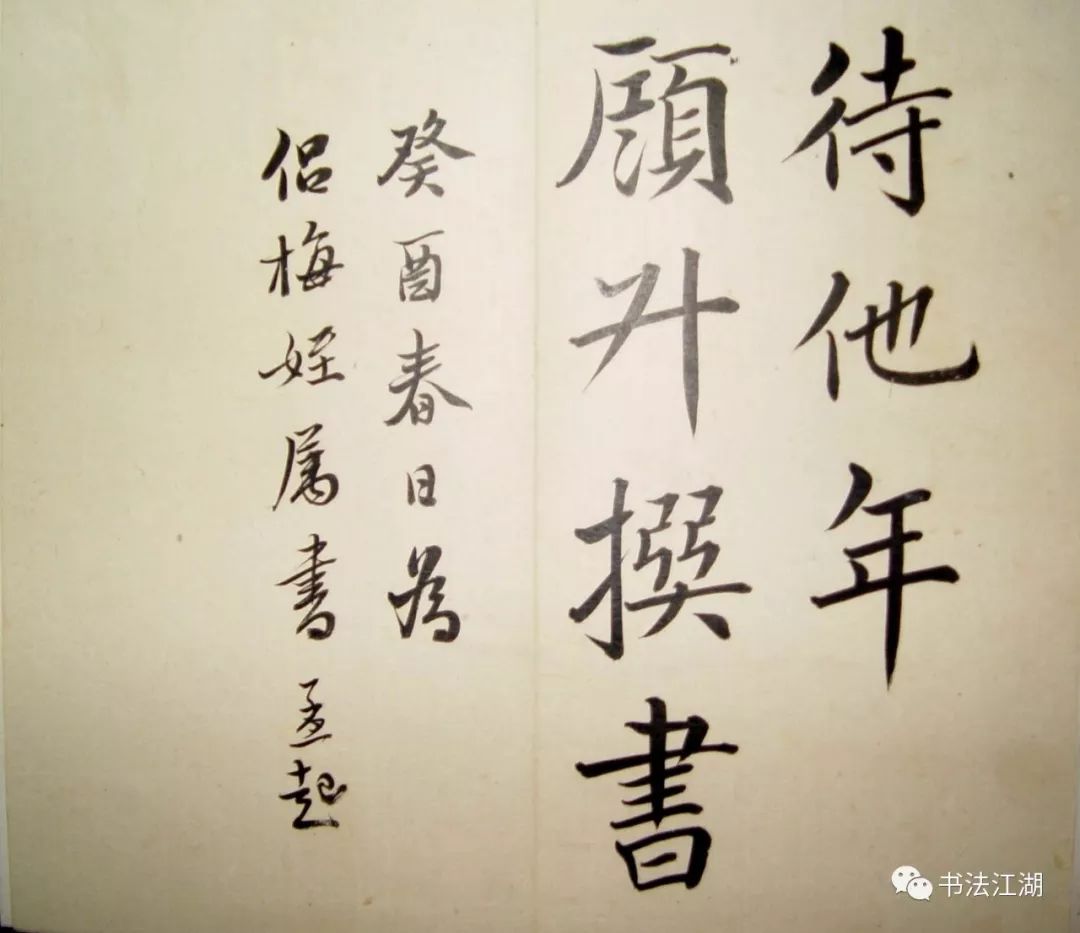 待他年
頋升撰書
癸酉春日為
侣梅姪属書 孟起
书法江湖